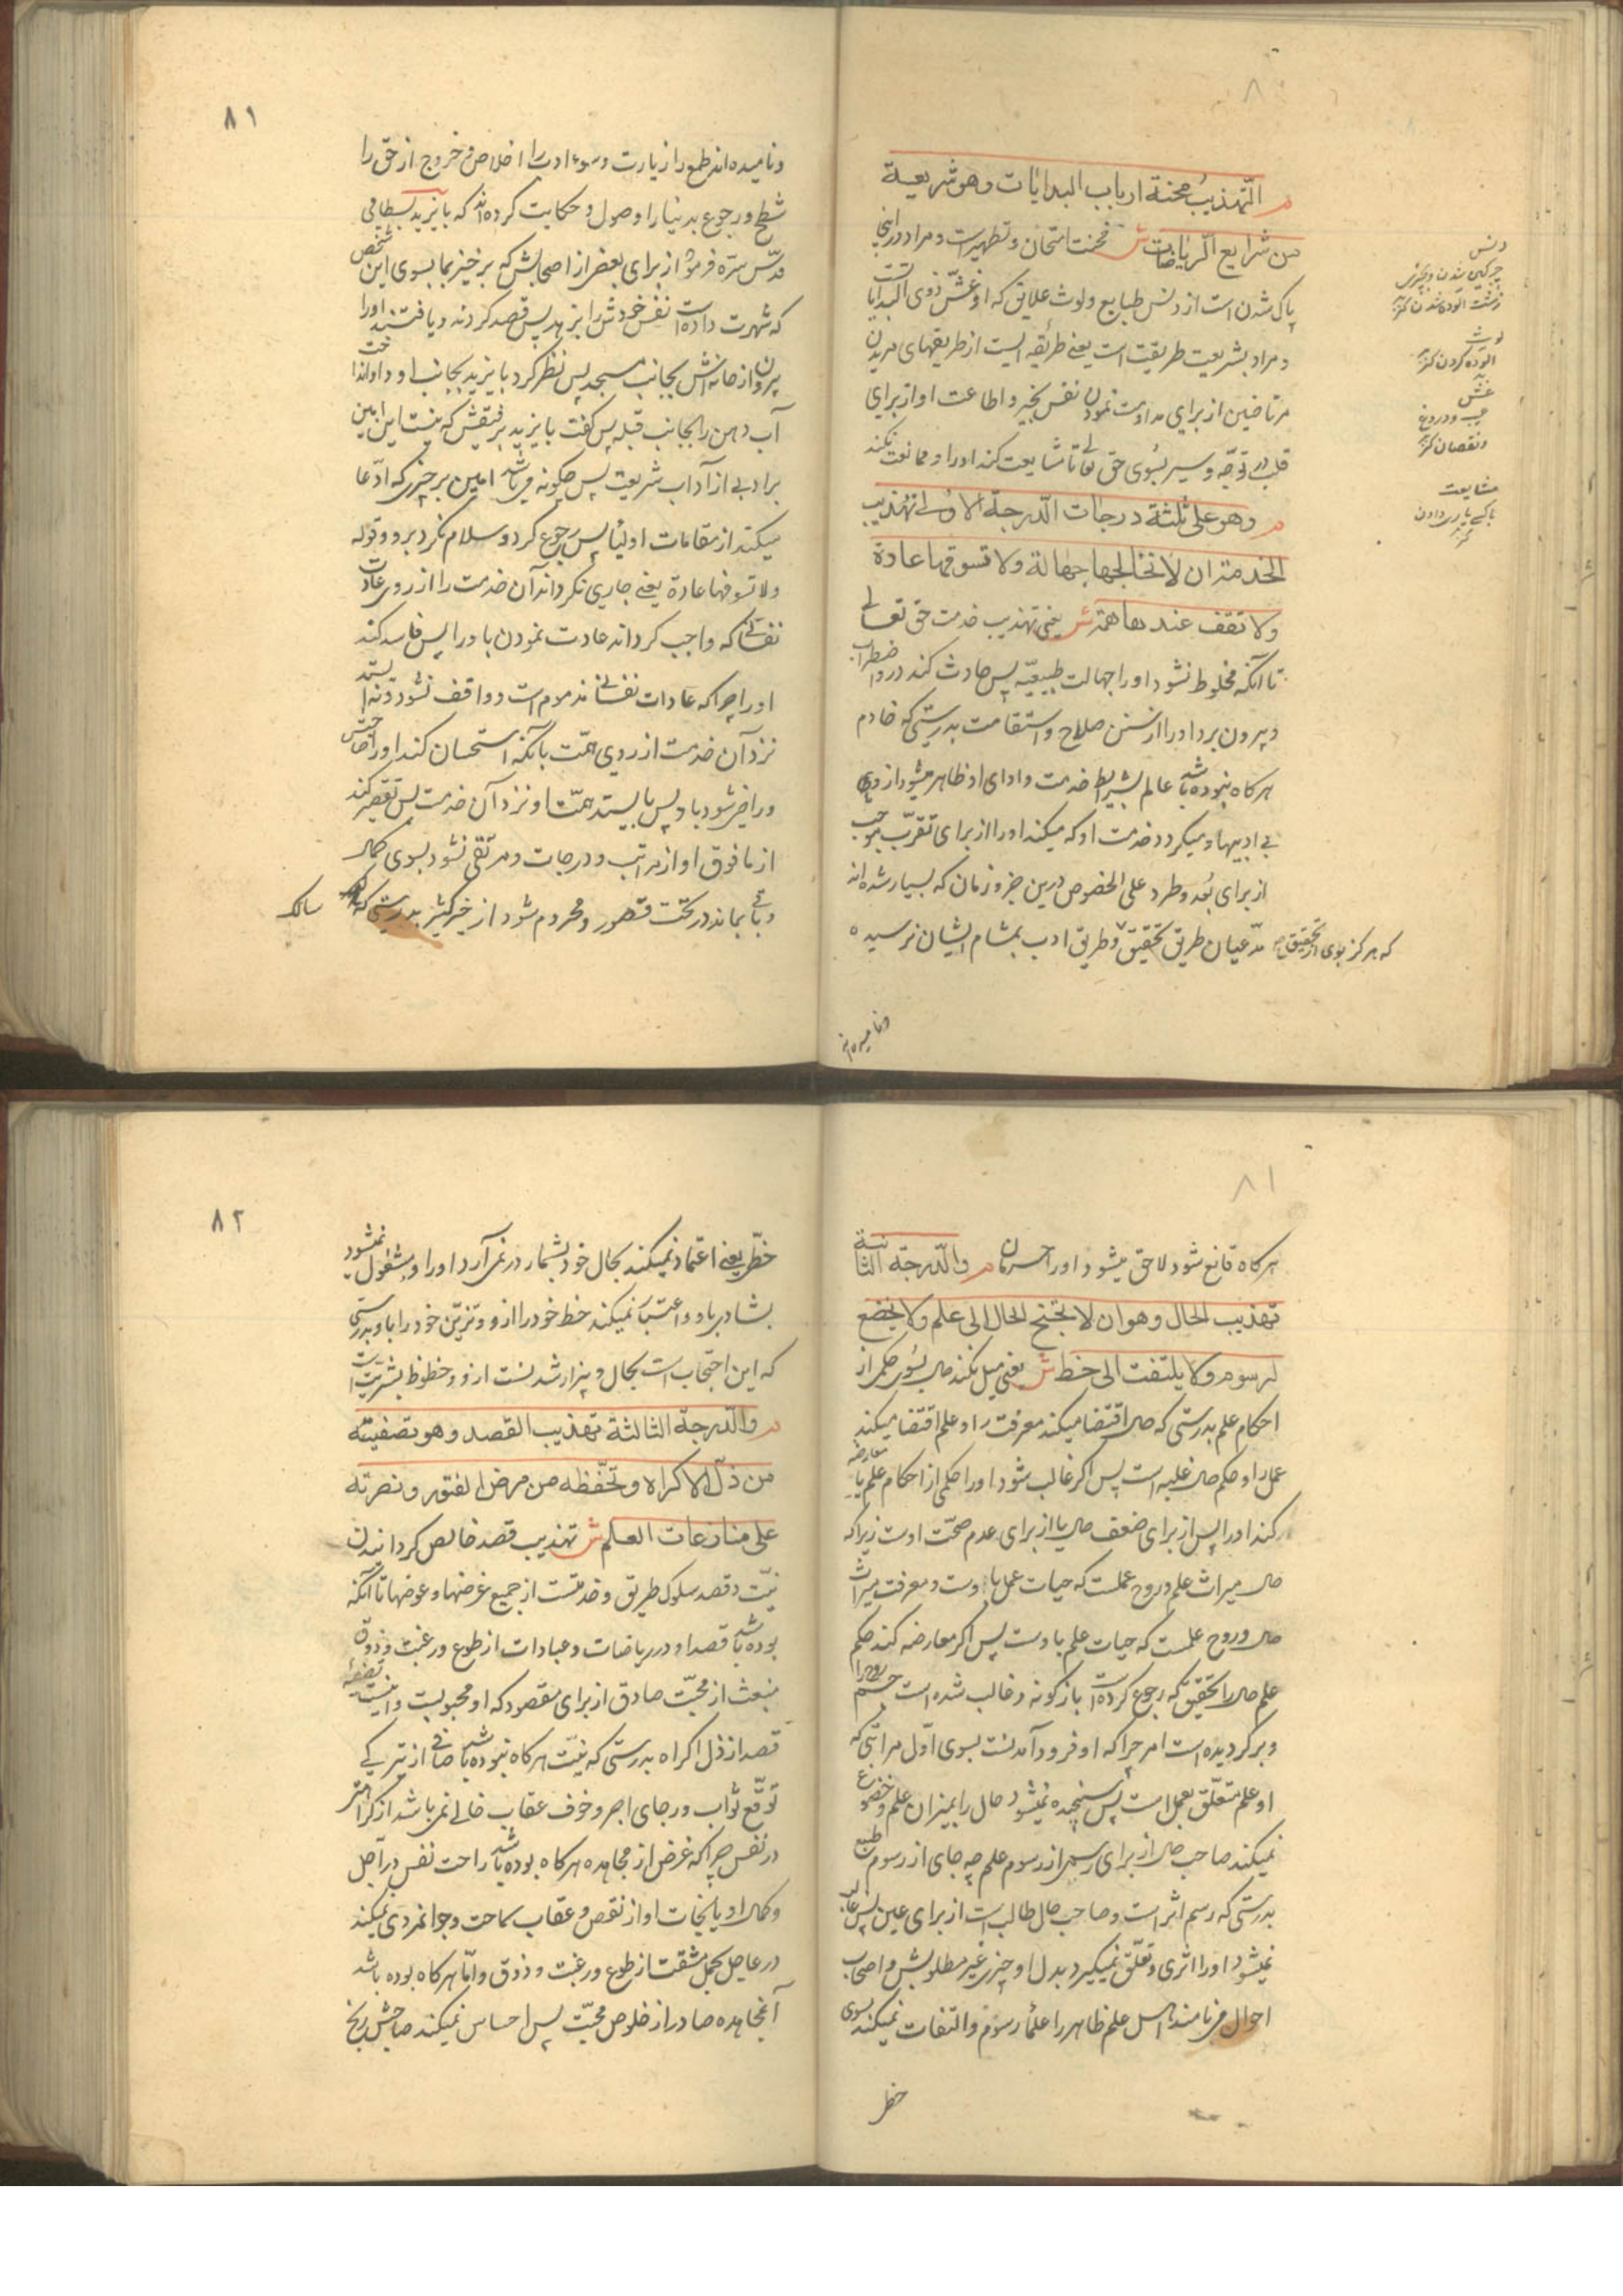 ۸۰
م التهذیب محنة ارباب البدایات وهو شریعة
من شرایع الریاضات ش محنت امتحان و تطهیرست و مراد در اینجا
پاک شدن است از دنس طبایع و لوث علایق که او غش ذوی البدایات است
و مراد بشریعت طریقت است یعنی طریقه ایست از طریقهای مریدین
مرتاضین از برای مداومت نمودن نفس بخیر و اطاعت او از برای
قلب در توجه و سیر بسوی حق تعالی تا مشایعت کند او را و ممانعت نکند
م وهو علی ثلثة درجات الدرجة الاولی تهذیب
الخدمة ان لا تخالجها جهالة ولا تسوقها عادة
ولا تقف عندها همة ش یعنی تهذیب خدمت حق تعالی
تا آنکه مخلوط نشود او را جهالت طبیعیه پس حادث کند در او اضطراب
و بیرون برد او را از سنن صلاح و استقامت بدرستی که خادم
هر کاه نبوده باشد عالم بشرایط خدمت و ادای او ظاهر میشود از وی
بی ادبیها و میکردد خدمت او که میکند او را از برای تقرب موجب
از برای بعد و طرد علی الخصوص درین جزو زمان که بسیار شده اند
مدعیان طریق تحقیق و طریق ادب بمشام ایشان نرسیده
که هرکز بوی از تحقیق
و نامیده اند
دنس
چرکین شدن و بچیزی
زشت آلوده شدن کنز
لوث
آلوده کردن کنز
غش
عیب و دروغ
و نقصان کنز
مشایعت
با کسی یاری دادن
کنز
۸۱
و نامیده اند طمع را زیارت و سوء ادب را اخلاص و خروج از حق را
شطح و رجوع بدنیا را وصول و حکایت کرده اند که بایزید بسطامی
قدس سره فرمود از برای بعضی از اصحابش که برخیز بما بسوی این شخص
که شهرت داده است نفس خودش را بزهد پس قصد کردند و یافتند او را
بیرون از خانه اش بجانب مسجد پس نظر کرد بایزید بجانب او و او انداخت
آب دهن را بجانب قبله پس کفت بایزید برفیقش که نیست این امین
بر ادبی از آداب شریعت پس چکونه می باشد امین بر چیزی که ادعا
میکند از مقامات اولیا پس رجوع کرد و سلام نکرد برو و قوله
ولا تسوقها عادة یعنی جاری نکرداند آن خدمت را از روی عادت
نفسانی که واجب کرداند عادت نمودن باو را پس فاسد کند
او را چرا که عادات نفسانی مذموم است و واقف نشود و نه ایستد
نزد آن خدمت از روی همت بآنکه استحسان کند او را صاحبش
و راضی شود باو پس بایستد همت او نزد آن خدمت پس تقصیر کند
از ما فوق او از مراتب و درجات و مرتقی نشود بسوی کمال
و باقی بماند در تحت قصور و محروم شود از خیر کثیر بدرستی که
سالک
۸۱
هر کاه قانع شود لاحق میشود او را حرمان م والدرجة الثانیة
تهذیب الحال وهو ان لا یجنح الحال الی علم ولا یخضع
لرسم ولا یلتفت الی حظ ش یعنی میل نکند حال بسوی حکمی از
احکام علم بدرستی که حال اقتضا میکند معرفت را و علم اقتضا میکند
عمل را و حکم حال غلبه است پس اکر غالب شود او را حکمی از احکام علم یا معارضه
کند او را پس از برای ضعف حال یا از برای عدم صحت اوست زیرا که
حال میراث علم و روح عملست که حیات عمل باوست و معرفت میراث
حال و روح علمست که حیات علم باوست پس اکر معارضه کند حکم
علم حال را بتحقیق که رجوع کرده است بازکونه و غالب شده است جسم روح را
و برکردیده است امر چرا که او فرود آمدنست بسوی اول مراتبی که
او علم متعلق بعمل است پس سنجیده نمیشود حال را بمیزان علم و خضوع
نمیکند صاحب حال از برای رسمی از رسوم علم چه جای از رسوم طبع
بدرستی که رسم اثر است و صاحب حال طالب است از برای عین پس
نمیشود او را اثری و تعلق نمیکیرد بدل او چیزی غیر مطلوبش و اصحاب
احوال می نامند اهل علم ظاهر را علماء رسوم و التفات نمیکند بسوی
حظ
۸۲
حظی یعنی اعتماد نمیکند بحال خود بشمار در نمی آرد او را و مشغول نمیشود
بشادی باو و اعتبار نمیکند حظ خود را ازو و تزین خود را باو بدرستی
که این احتجاب است بحال و بیزار شدنست ازو و حظوظ بشریت است
م والدرجة الثالثة تهذیب القصد وهو تصفیته
من ذل الاکراه وتحفظه من مرض الفتور ونصرته
علی منازعات العلم ش تهذیب قصد خالص کردانیدن
نیت و قصد سلوک طریق و خدمتست از جمیع غرضها و عوضها تا آنکه
بوده باشد قصد او در ریاضات و عبادات از طوع و رغبت و ذوق
منبعث از محبت صادق از برای مقصود که او محبوبست و اینست تصفیه
قصد از ذل اکراه بدرستی که نیت هر کاه نبوده باشد صافی از تیرکی
توقع ثواب و رجای اجر و خوف عقاب خالی نمی باشد از کراهتی
در نفس چرا که غرض از مجاهده هر کاه بوده باشد راحت نفس در آجل
و کمال او یا نجات او از نقص و عقاب سماحت و جوانمردی نمیکند
در عاجل بحمل مشقت از طوع و رغبت و ذوق و اما هر کاه بوده باشد
آنمجاهده صادر از خلوص محبت پس احساس نمیکند صاحبش رنج